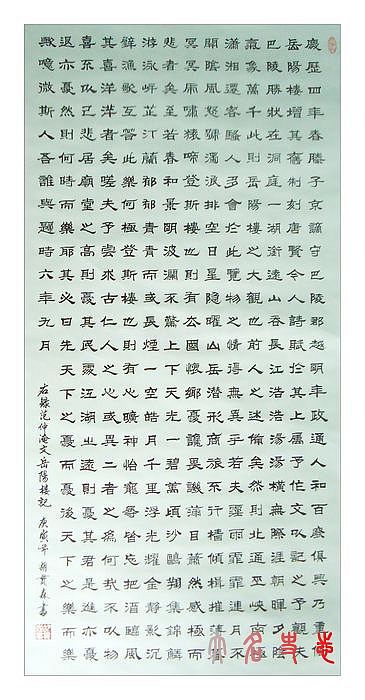 慶歷四年春滕子京謫守巴陵郡越明年政通人和百廢俱興乃重修
岳陽樓增其舊制刻唐賢今人詩賦於其上屬予作文以記之予觀夫
巴陵勝狀在洞庭一湖銜遠山吞長江浩浩湯湯橫無際涯朝暉夕陰
氣象萬千此則岳陽樓之大觀也前人之述備矣然則北通巫峽南極
瀟湘遷客騷人多會於此覽物之情得無異乎若夫霪雨霏霏連月不
開陰風怒號濁浪排空日星隱曜山岳潛形商旅不行檣傾楫摧薄暮冥
冥虎嘯猿啼登斯樓也則有去國懷鄉憂讒畏譏滿目蕭然感極而
悲者矣至若春和景明波瀾不驚上下天光一碧萬頃沙鷗翔集錦鱗
游泳岸芷汀蘭郁郁青青而或長煙一空皓月千里浮光耀金靜影沉
璧漁歌互答此樂何極登斯樓也則有心曠神怡寵辱皆忘把酒臨風
其喜洋洋者矣嗟夫予嘗求古仁人之心或異二者之為何哉不以物
喜不以己悲居廟堂之高則憂其民處江湖之遠則憂其君是進亦憂
退亦憂然則何時而樂耶其必曰先天下之憂而憂後天下之樂而樂
歟噫微斯人吾誰與歸時六年九月
右錄范仲淹文岳陽樓記 庚寅年 書